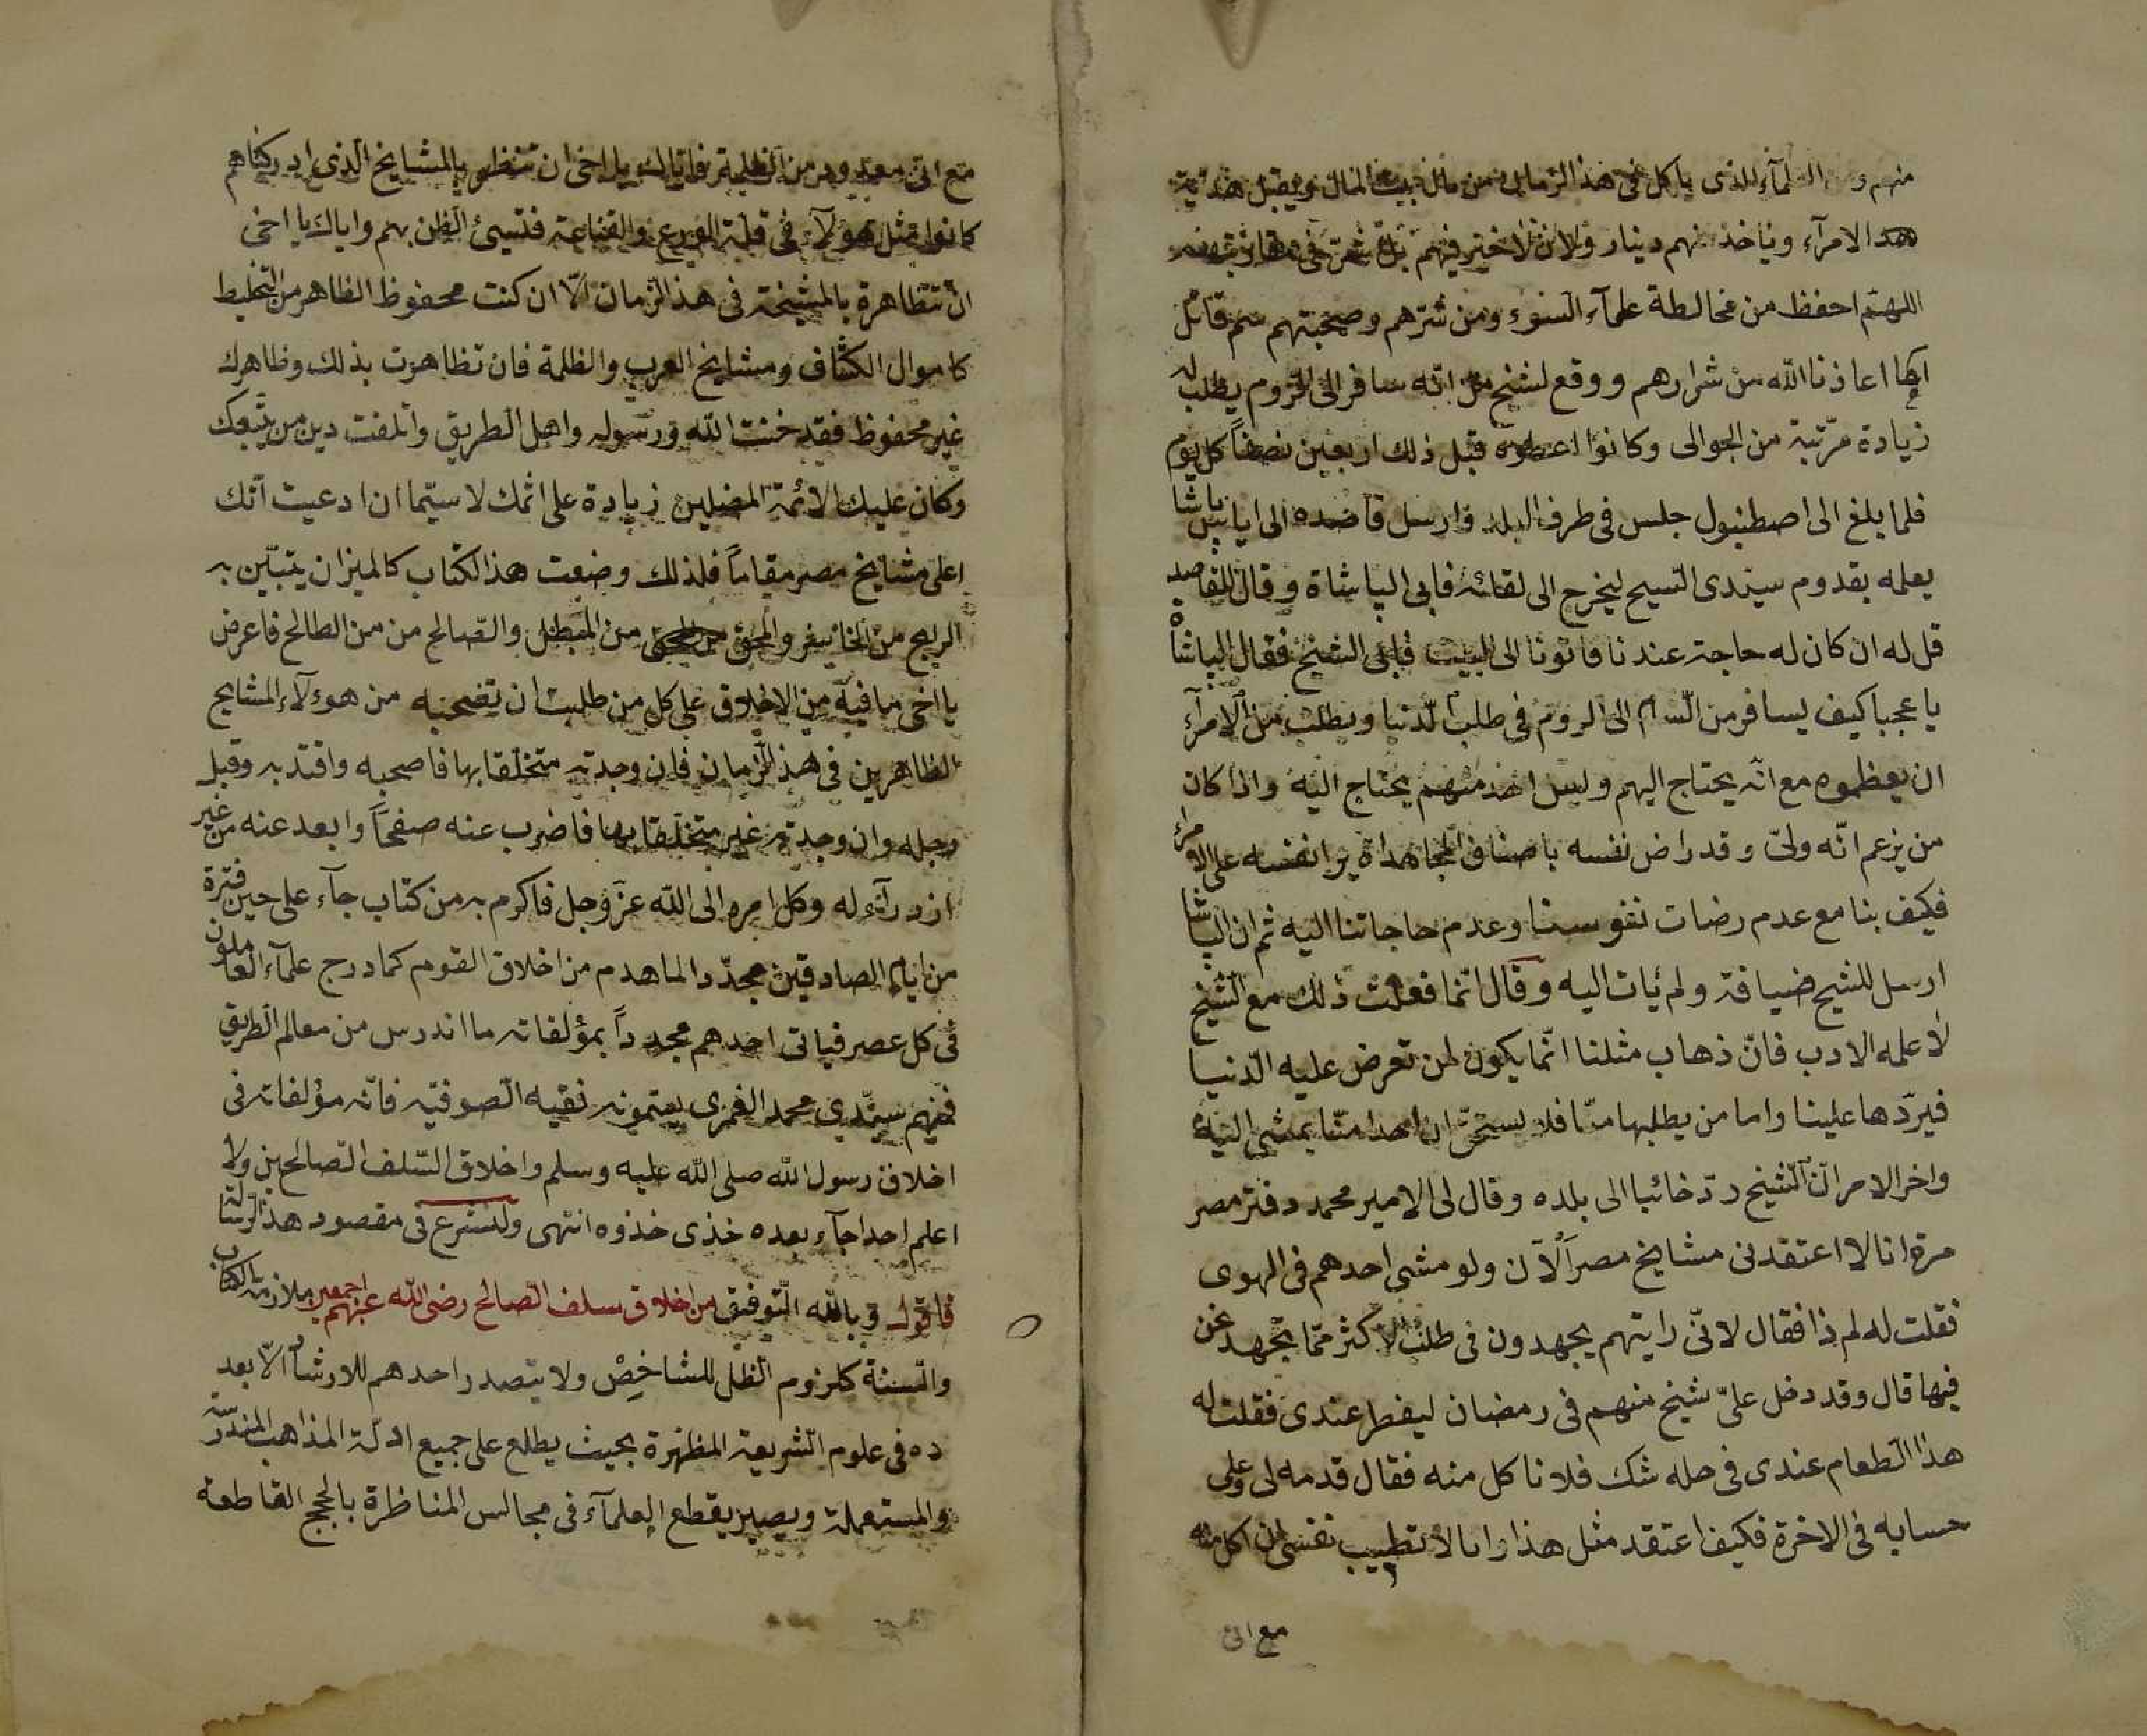 منهم ومن العلمآء الذى ياكل فى هذا الزمان من مال بيت المال ويقبل هدية
هد الامرآء وياخذ منهم دينار ولان لا خير فيهم بل شر
اللهم احفظ من مخالطة علمآء السوء ومن شرّهم وصحبتهم سم قاتل
اعاذنا الله من شرارهم ووقع لشيخ انّه سافر الى الروم يطلب له
زيادة مرّتبة من الجوالى وكانوا اعطوه قبل ذلك اربعين نصفاً كل يوم
فلما بلغ الى اصطنبول جلس فى طرف البلد وارسل قاصده الى اياس باشا
يعلمه بقدوم سيّدى الشيخ ليخرج الى لقائه فابى الپاشاة وقال للقاصد
قل له ان كان له حاجة عندنا فاتونا الى البيت فابى الشيخ فقال الپاشاه
يا عجبا كيف يسافر من الشام الى الروم فى طلب الدنيا ويطلب من الامرآء
ان يعظموه مع انه يحتاج اليهم وليس احد منهم يحتاج اليه واذا كان
من يزعم انّه ولىّ وقد راض نفسه باصناف المجاهداة يرا نفسه على الامراء
فكيف بنا مع عدم رضات نفوسنا وعدم حاجاتنا اليه ثم ان الپاشا
ارسل للشيخ ضيافة ولم يات اليه وقال انما فعلت ذلك مع الشيخ
لاعلمه الادب فانّ ذهاب مثلنا انّما يكون لمن تعرض عليه الدنيا
فيردّها علينا واما من يطلبها منّا فلا يستحقّ ان احدا منّا يمشى اليه
واخر الامر انّ الشيخ ردّ خائبا الى بلده وقال لى الامير محمد دفتر مصر
مرة انا لا اعتقد فى مشايخ مصر الآن ولو مشى احدهم فى الهوى
فقلت له لم ذا فقال لانّى رايتهم يجهدون فى طلب لاكثر ممّا نجهد نحن
فيها قال وقد دخل علىّ شيخ منهم فى رمضان ليفطر عندى فقلت له
هذا الطعام عندى فى حله شك فلا تاكل منه فقال قدمه لى وعلى
حسابه فى الاخرة فكيف اعتقد مثل هذا وانا لا تطيب نفسى ان اكل منه
مع انى
مع انى معدود من الظلمة فاياك يا اخى ان تنظر بالمشايخ الذى ادركناهم
كانوا مثل هولآء فى قلة الورع والقناعة فتسئ الظن بهم واياك يا اخى
ان تتظاهرة بالمشيخة فى هذا الزمان الّا ان كنت محفوظ الظاهر من التخليط
كاموال الكشاف ومشايخ العرب والظلمة فان تظاهرت بذلك وظاهرك
غير محفوظ فقد خنت الله ورسوله واهل الطريق واتلفت دين من يتبعك
وكان عليك الائمة المضلين زيادة على اثمك لا سيّما ان ادعيت انّك
اعلى مشايخ مصر مقاماً فلذلك وضعت هذا الكتاب كالميزان يتبيّن به
الربح من الخاسر والمحق من المبطل والصالح من من الطالح فاعرض
يا اخى ما فيه من الاخلاق على كل من طلبت ان تصحبه من هوءلآء المشايخ
الظاهرين فى هذا الزمان فان وجدته متخلّقا بها فاصحبه واقتد به وقبل
رجله وان وجدته غير متخلّقا بها فاضرب عنه صفحاً وابعد عنه من غير
ازدرآء له وكل امره الى الله عزّ وجل فاكرم به من كتاب جآء على حين فترة
من ايام الصادقين مجدّدا لما هدم من اخلاق القوم كما درج علمآء العاملون
فى كل عصر فياتى احدهم مجدداً بمؤلفاته ما اندرس من معالم الطريق
فمنهم سيّدي محمد الغمرى فقيه الصوفيّه فانّه مؤلفاته فى
اخلاق رسول الله صلى الله عليه وسلم واخلاق السّلف الصالحين ولا
اعلم احدا جآء بعده خذى خذوه انتهى ولنشرع فى مقصود هذا الرسالة
فاقول وبالله التّوفيق من اخلاق سلف الصالح رضى الله عنهم اجمعين ملازمة الكتاب
والسنة كلزوم الظل للشاخص ولا يتصدر احدهم للارشاد الّا بعد
ده فى علوم الشريعة المظهرة بحيث يطلع على جميع ادلة المذاهب المندرسة
والمستعملة ويصير يقطع العلمآء فى مجالس المناظرة بالحجج القاطعة